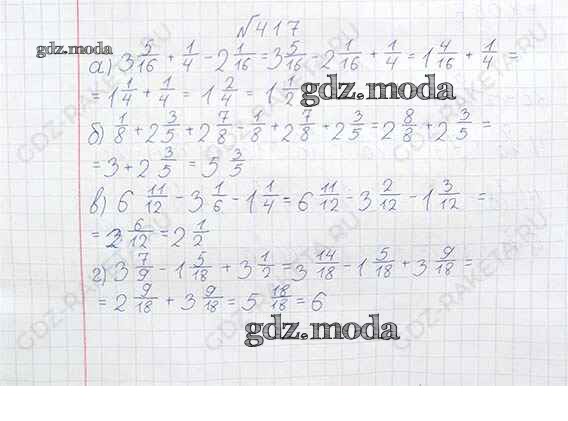 №417
gdz.moda
а) 3 5/16 + 1/4 - 2 1/16 = 3 5/16 - 2 1/16 + 1/4 = 1 4/16 + 1/4 =
= 1 1/4 + 1/4 = 1 2/4 = 1 1/2
gdz.moda
б) 1/8 + 2 3/5 + 2 7/8 = 1/8 + 2 7/8 + 2 3/5 = 2 8/8 + 2 3/5 =
= 3 + 2 3/5 = 5 3/5
в) 6 11/12 - 3 1/6 - 1 1/4 = 6 11/12 - 3 2/12 - 1 3/12 =
= 2 6/12 = 2 1/2
г) 3 7/9 - 1 5/18 + 3 1/2 = 3 14/18 - 1 5/18 + 3 9/18 =
= 2 9/18 + 3 9/18 = 5 18/18 = 6
gdz.moda
GDZ-RAKETA.RU
GDZ-RAKETA.RU
GDZ-RAKETA.RU
GDZ-RAKETA.RU